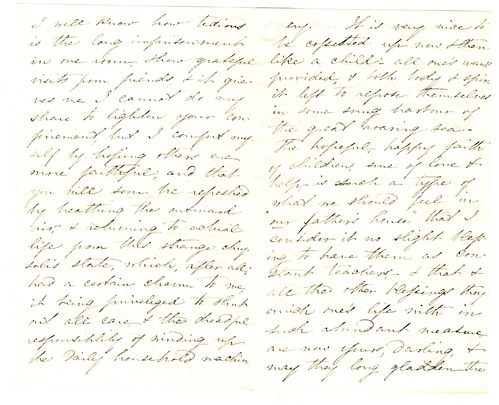 I well know how tedious
is the long imprisonment
in one room, & how grateful
visits from friends & it grie-
ves me I cannot do my
share to lighten your con-
finement, but I comfort my
self by hoping others are
more faithful, and that
you will soon be refreshed
by breathing the outward
air, & returning to actual
life from this strange chry-
solis state, which, after all,
had a certain charm to me,
it being privileged to shut
out all care & the dreadful
responsibility of winding up
the daily household machin
ery. It is very nice to
be cosseted up now & then
like a child - all one's wants
provided, & both body & spir-
it left to repose themselves
in some snug harbour of
the great roaring sea.
The hopeful, happy faith
of children, sure of love &
help is such a type of
what we should feel in
"our father's house" that I
consider it no slight bless-
ing to have them as con-
stant teachers - & that &
all the other blessings they
enrich one's life with in
such abundant measure
are now yours, darling, &
may they long gladden the